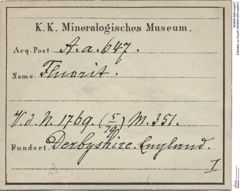 K. K. Mineralogisches Museum.
Acq. Post A. a. 647.
Name: Fluorit.
1769. M. 351.
Fundort. Derbyshire. England.
I